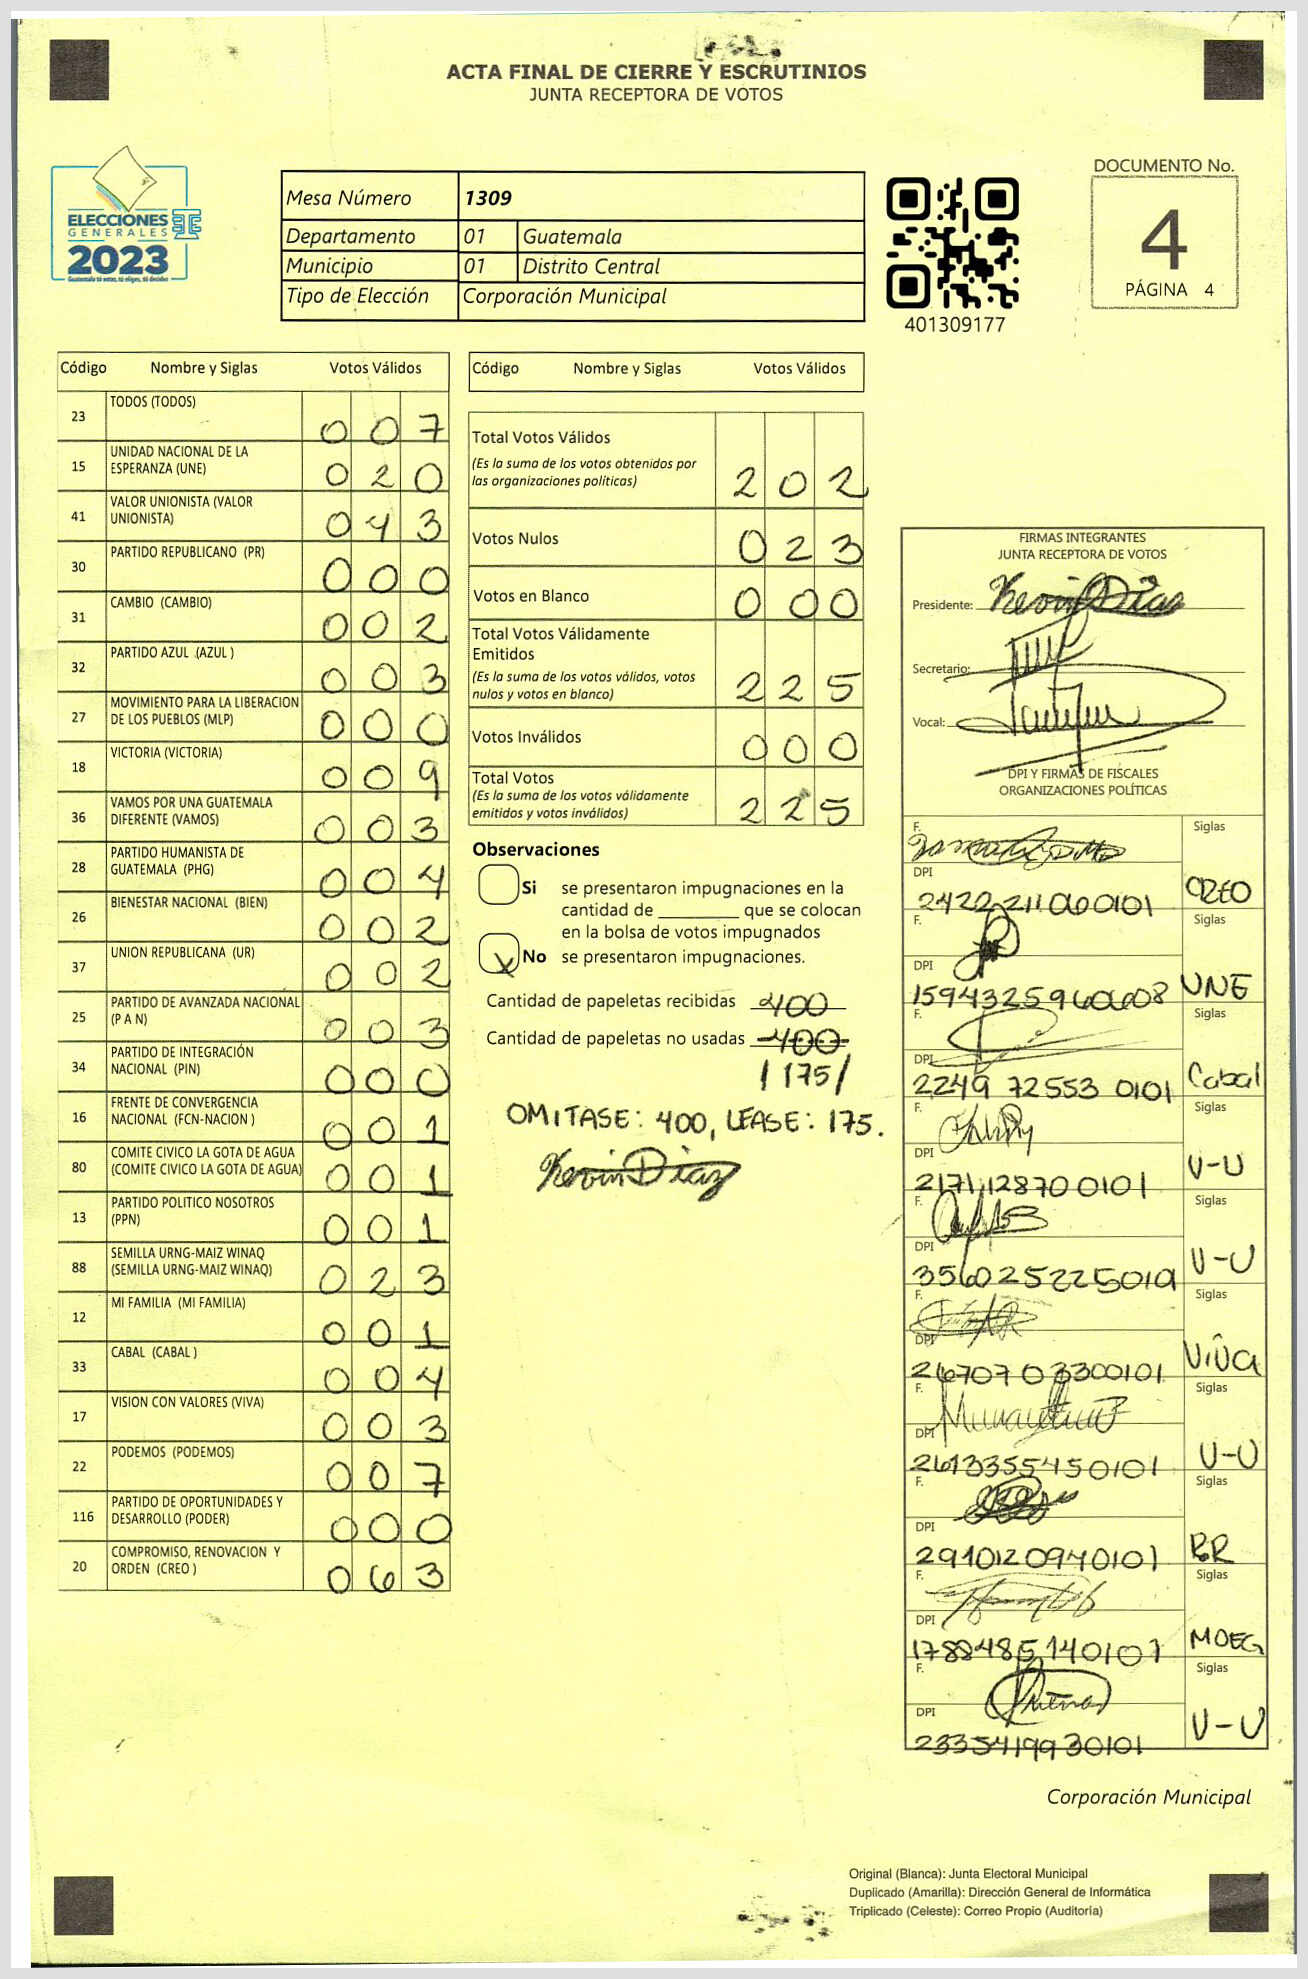 ACTA FINAL DE CIERRE Y ESCRUTINIOS
JUNTA RECEPTORA DE VOTOS
ELECCIONES
GENERALES
2023
Guatemala tú votas, tú eliges, tú decides
Mesa Número 1309
Departamento 01 Guatemala
Municipio 01 Distrito Central
Tipo de Elección Corporación Municipal
401309177
DOCUMENTO No.
4
PÁGINA 4
Código Nombre y Siglas Votos Válidos
23 TODOS (TODOS) 007
15 UNIDAD NACIONAL DE LA ESPERANZA (UNE) 020
41 VALOR UNIONISTA (VALOR UNIONISTA) 043
30 PARTIDO REPUBLICANO (PR) 000
31 CAMBIO (CAMBIO) 002
32 PARTIDO AZUL (AZUL ) 003
27 MOVIMIENTO PARA LA LIBERACION DE LOS PUEBLOS (MLP) 000
18 VICTORIA (VICTORIA) 009
36 VAMOS POR UNA GUATEMALA DIFERENTE (VAMOS) 003
28 PARTIDO HUMANISTA DE GUATEMALA (PHG) 004
26 BIENESTAR NACIONAL (BIEN) 002
37 UNION REPUBLICANA (UR) 002
25 PARTIDO DE AVANZADA NACIONAL (P A N) 003
34 PARTIDO DE INTEGRACIÓN NACIONAL (PIN) 000
16 FRENTE DE CONVERGENCIA NACIONAL (FCN-NACION ) 001
80 COMITE CIVICO LA GOTA DE AGUA (COMITE CIVICO LA GOTA DE AGUA) 001
13 PARTIDO POLITICO NOSOTROS (PPN) 001
88 SEMILLA URNG-MAIZ WINAQ (SEMILLA URNG-MAIZ WINAQ) 023
12 MI FAMILIA (MI FAMILIA) 001
33 CABAL (CABAL ) 004
17 VISION CON VALORES (VIVA) 003
22 PODEMOS (PODEMOS) 007
116 PARTIDO DE OPORTUNIDADES Y DESARROLLO (PODER) 000
20 COMPROMISO, RENOVACION Y ORDEN (CREO ) 063
Código Nombre y Siglas Votos Válidos
Total Votos Válidos 202
(Es la suma de los votos obtenidos por
las organizaciones políticas)
Votos Nulos 023
Votos en Blanco 000
Total Votos Válidamente
Emitidos 225
(Es la suma de los votos válidos, votos
nulos y votos en blanco)
Votos Inválidos 000
Total Votos 225
(Es la suma de los votos válidamente
emitidos y votos inválidos)
Observaciones
Si se presentaron impugnaciones en la
cantidad de ________ que se colocan
en la bolsa de votos impugnados
X No se presentaron impugnaciones.
Cantidad de papeletas recibidas 400
Cantidad de papeletas no usadas 400
/175/
OMITASE: 400, LEASE: 175.
Kevin Diaz
FIRMAS INTEGRANTES
JUNTA RECEPTORA DE VOTOS
Presidente: Kevin Díaz
Secretario:
Vocal:
DPI Y FIRMAS DE FISCALES
ORGANIZACIONES POLÍTICAS
F. Siglas
DPI 2422 21106 0101 CREO
F. Siglas
DPI 1594325960608 UNE
F. Siglas
DPI 2249 72553 0101 Cabal
F. Siglas
DPI 2171128700101 U-U
F. Siglas
DPI U-U
F. Siglas
DPI 2670703300101 ViVa
F. Siglas
DPI 2613355450101 U-U
F. Siglas
DPI 2910120940101
F. Siglas
DPI 1788485140101 MOEG
F. Siglas
DPI 2335419930101 U-U
Corporación Municipal
Original (Blanca): Junta Electoral Municipal
Duplicado (Amarilla): Dirección General de Informática
Triplicado (Celeste): Correo Propio (Auditoría)